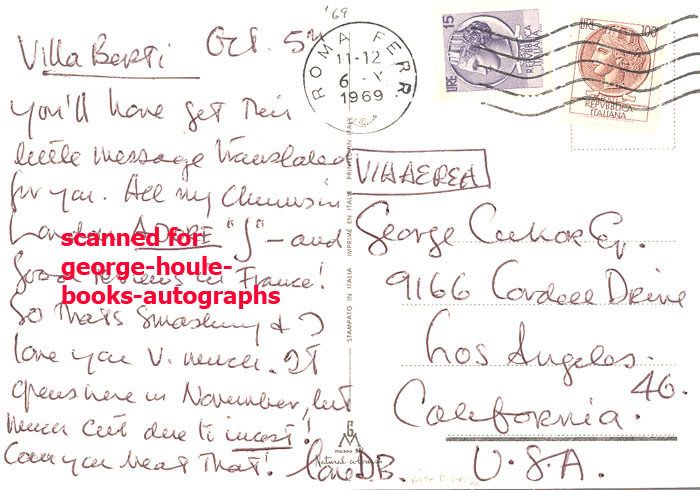 '69
Villa Berti Oct. 5th
You'll have get this
little message translated
for you. All my chums in
London ADORE "J" - and
good reviews in France!
So that's smashing & I
love you v. much. It
opens here in November, but
much cut due to incest!
Can you beat that! love D.B.
scanned for
george-houle-
books-autographs
ROMA FERR.
11-12
6 - X
1969
LIRE 15
REPVBBLICA
ITALIANA
LIRE 100
REPVBBLICA
ITALIANA
STAMPATO IN ITALIA IMPRIMÉ EN ITALIE PRINTED IN ITALY
GM
MILANO
Natural
VIA AEREA
George Cukor Esq.
9166 Cordell Drive
Los Angeles. 46.
California.
U.S.A.